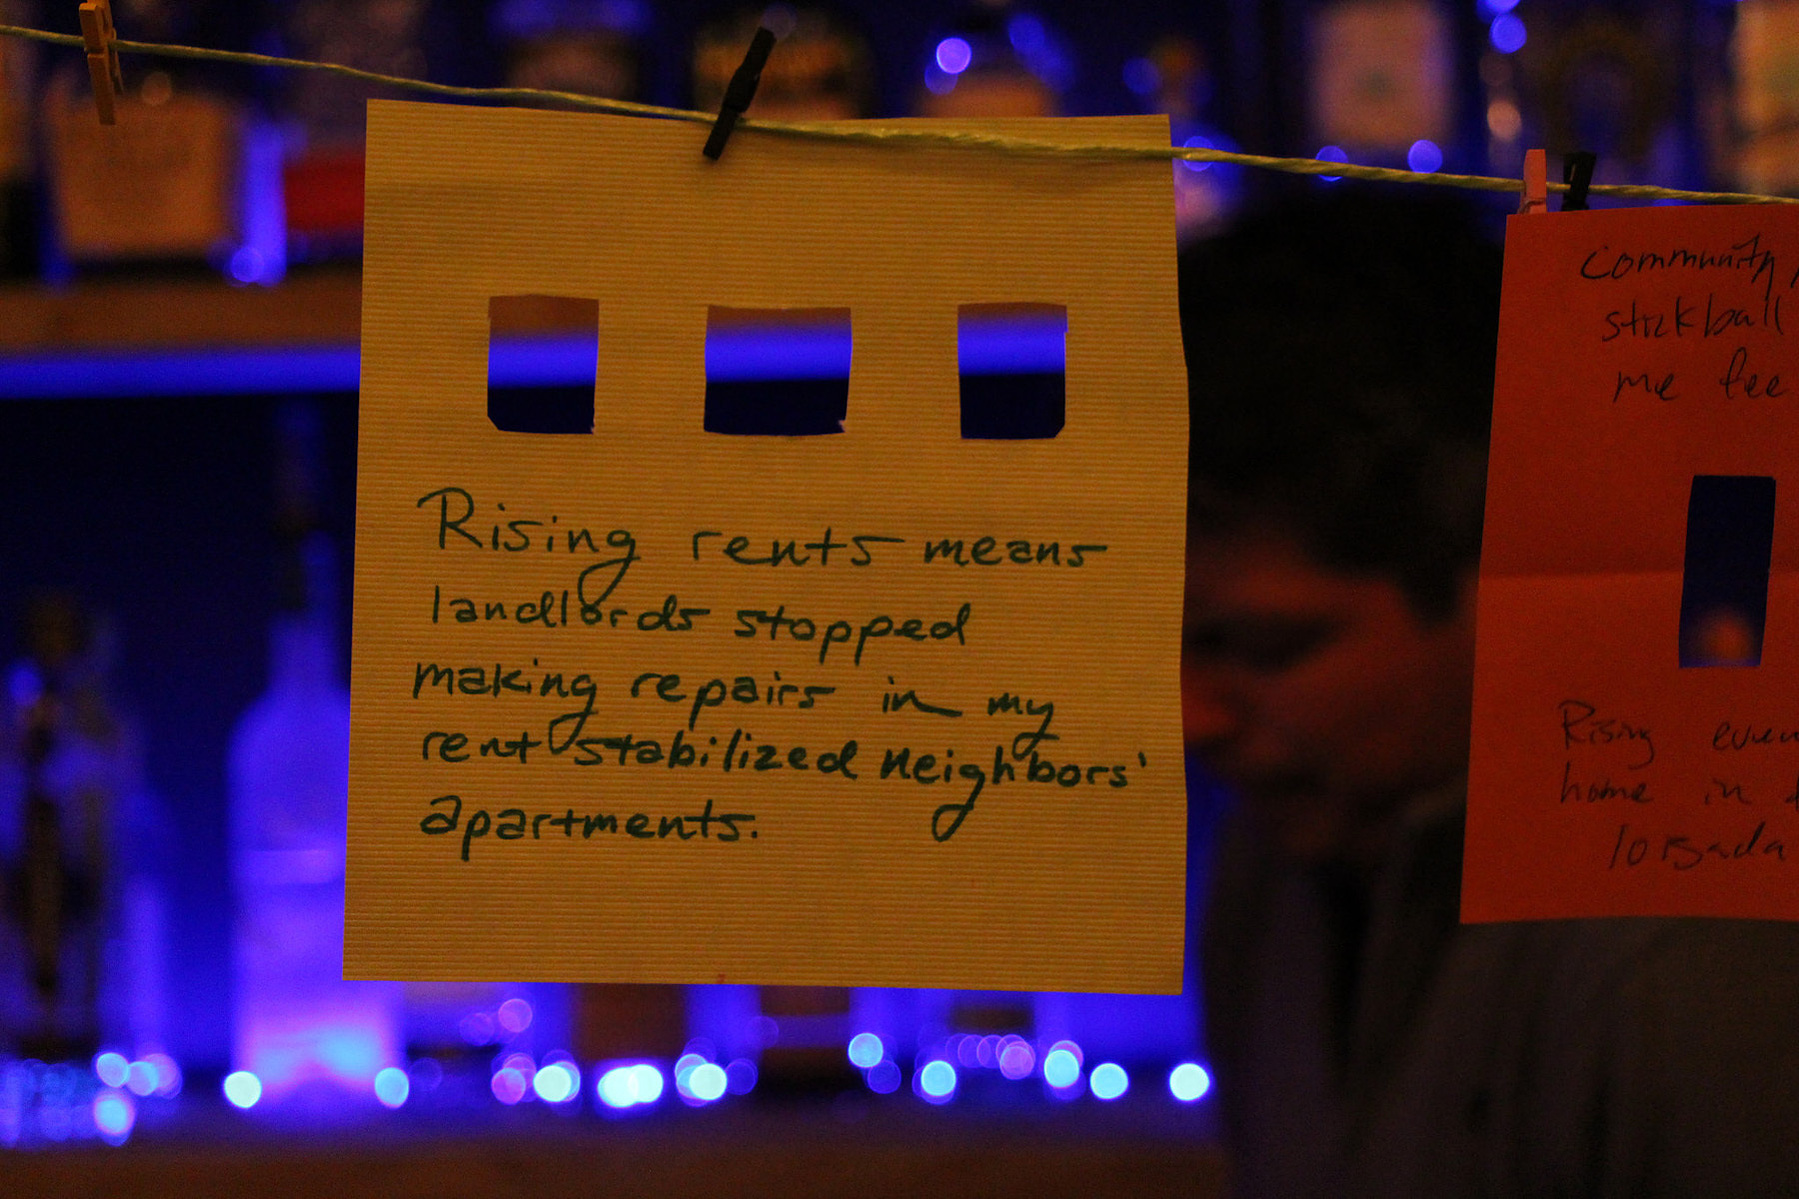 Rising rents means
landlords stopped
making repairs in my
rent stabilized neighbors'
apartments.
Community
stickball
me
Rising
home in